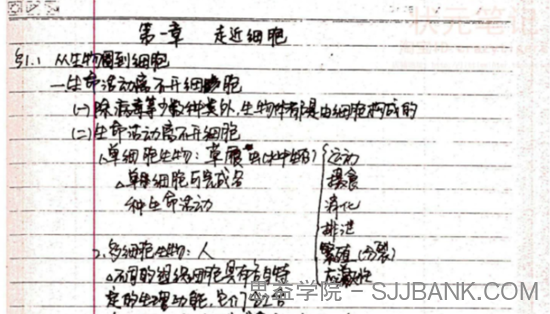 状元笔记
第一章 走近细胞
§1.1 从生物圈到细胞
一 生命活动离不开细胞
(一) 除病毒等少数种类外,生物体都是由细胞构成的
(二) 生命活动离不开细胞
1.单细胞生物:草履虫
运动
单细胞 完成各
摄食
种生命活动
消化
排泄
2.多细胞生物:人
繁殖(分裂)
不同的 细胞具有 特
应激性
定的生理功能,
思益学院 - SJJBANK.COM